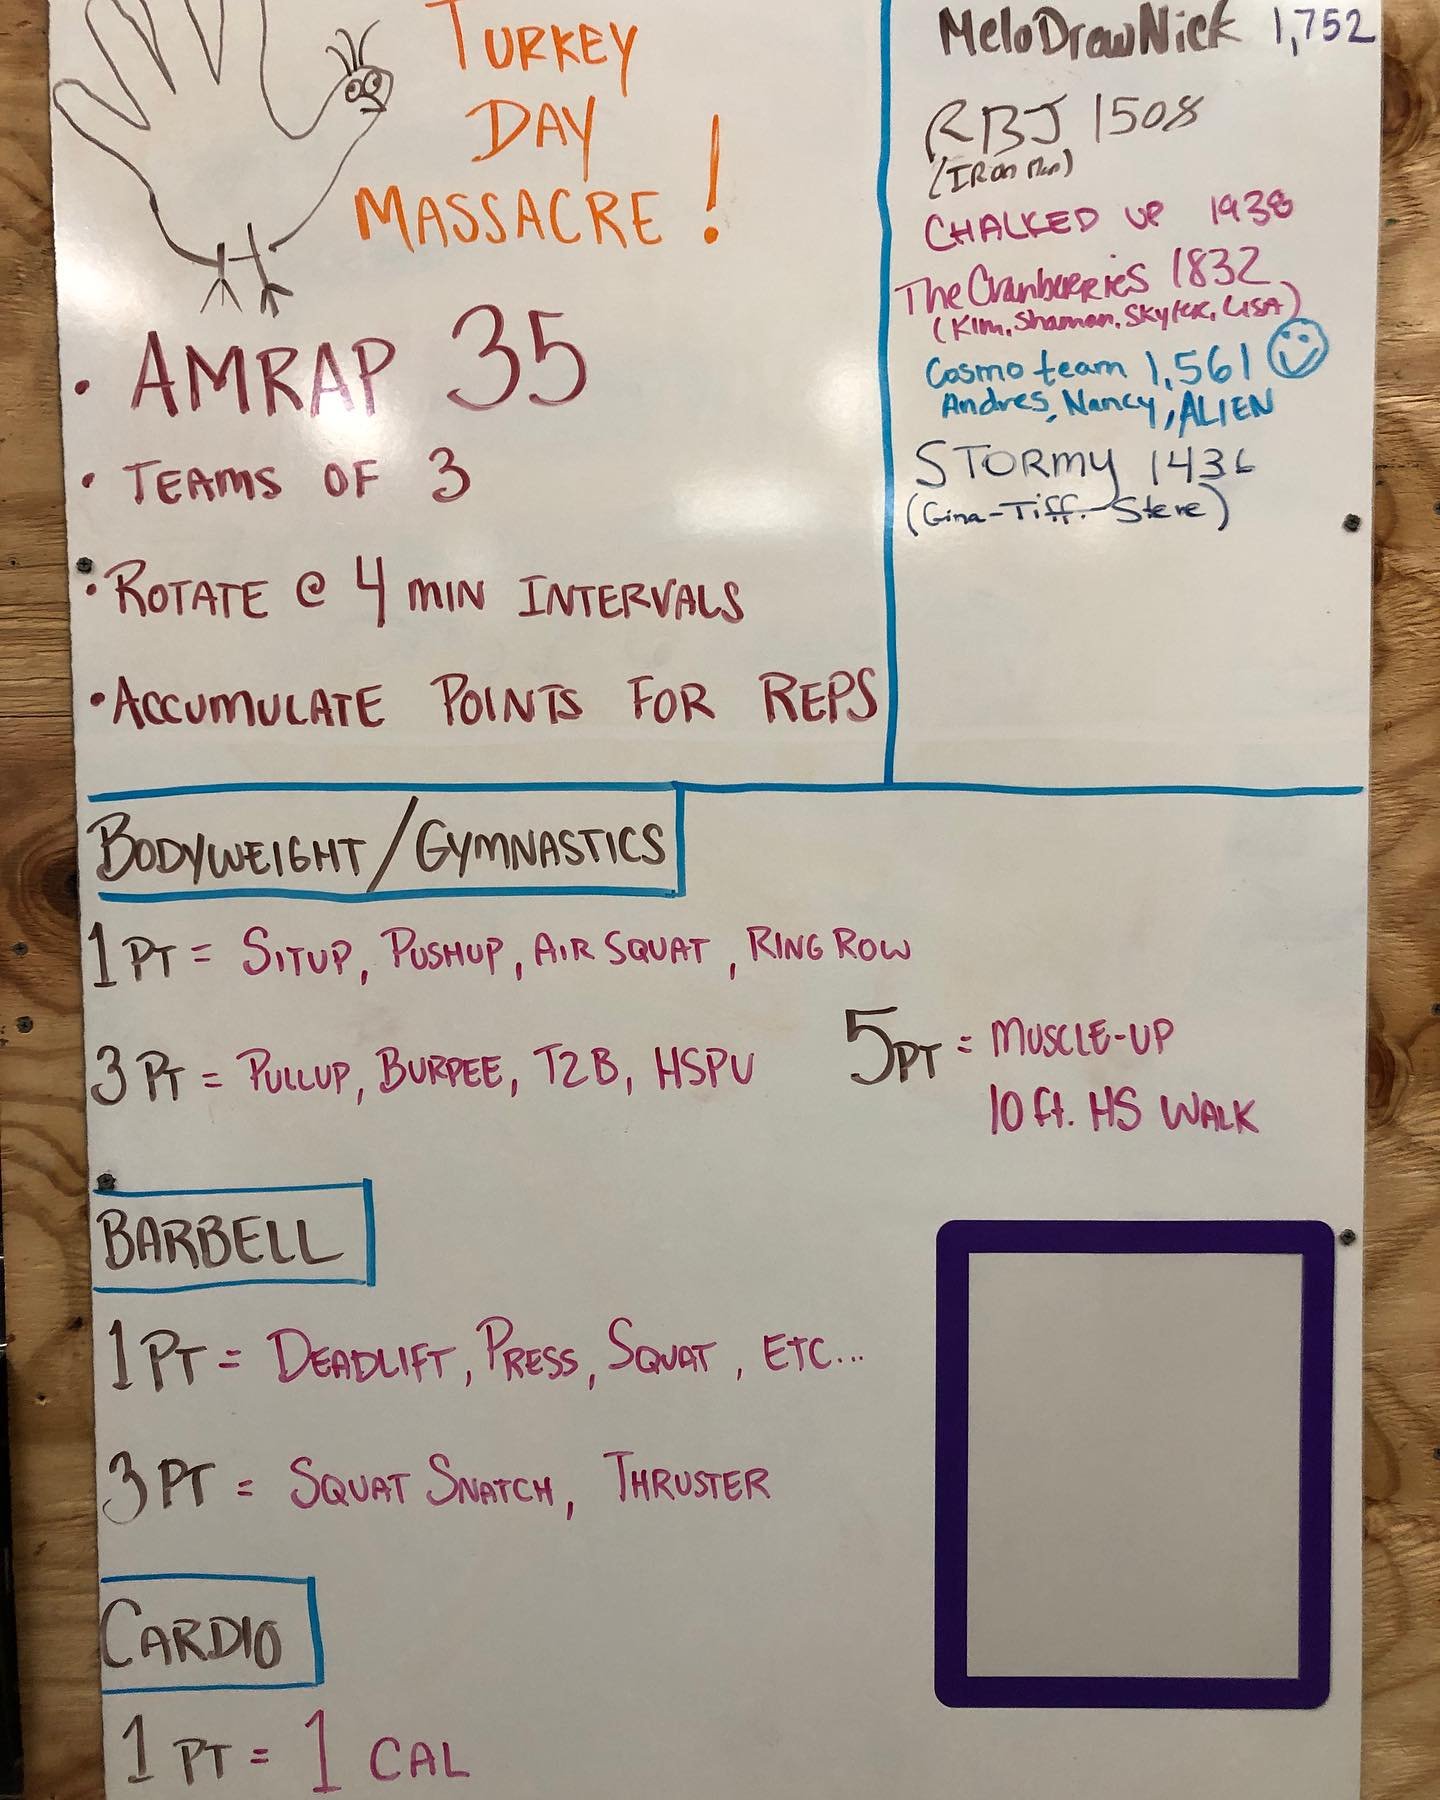 TURKEY
DAY
MASSACRE!
• AMRAP 35
• TEAMS OF 3
• ROTATE @ 4 MIN INTERVALS
• ACCUMULATE POINTS FOR REPS
MeloDrewNick 1,752
RBJ 1508
(IRon Man)
CHALKED UP 1938
The CranbeRRieS 1832
(Kim, Shaman, Skyler, LISA)
Cosmo team 1,561
Andres, Nancy, ALIEN
STORMY 1436
(Gina-Tiff-Steve)
BODYWEIGHT/GYMNASTICS
1 PT = SITUP, PUSHUP, AIR SQUAT, RING ROW
3 PT = PULLUP, BURPEE, T2B, HSPU
5 PT = MUSCLE-UP
10 ft. HS WALK
BARBELL
1 PT = DEADLIFT, PRESS, SQUAT, ETC...
3 PT = SQUAT SNATCH, THRUSTER
CARDIO
1 PT = 1 CAL